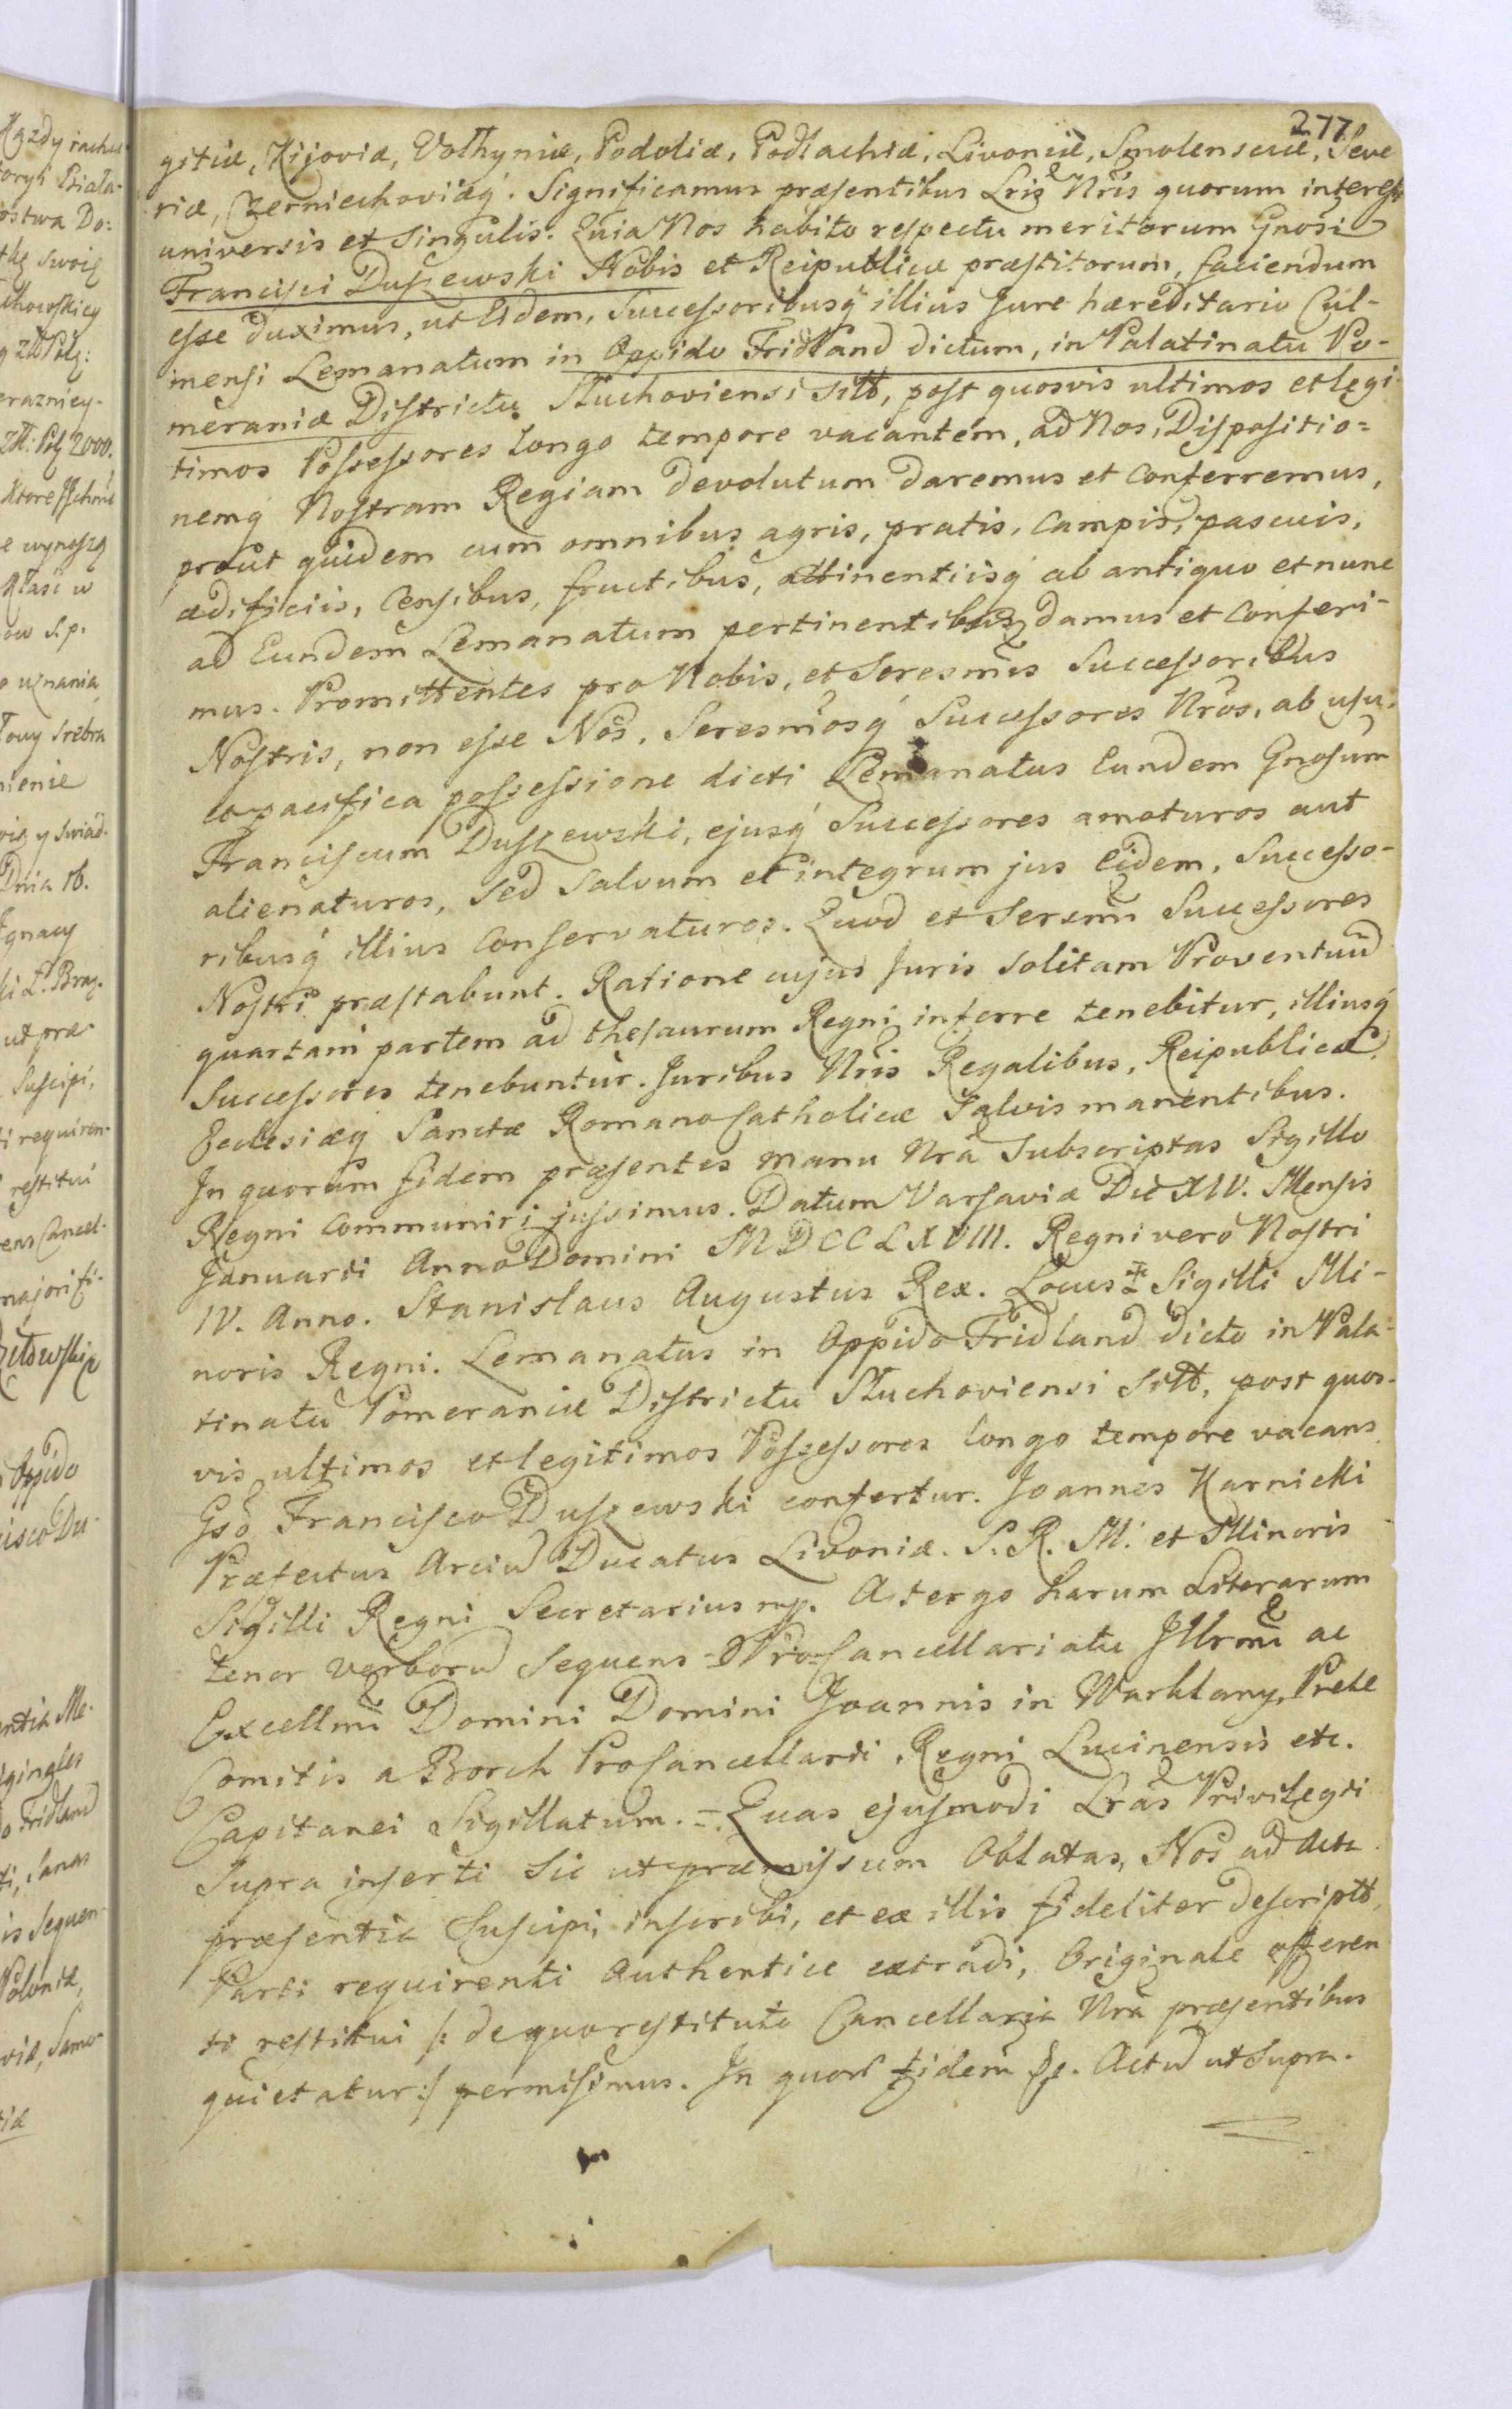 277
gitiæ, Kijoviæ, Volhyniæ, Podoliæ, Podlachiæ, Livoniæ, Smolensciæ, Seve
riæ, Czerniechoviæq́. Significamus præsentibus Lris Nris quorum interest
universis et singulis. Quia Nos habito respectu meritorum Gnosi
Francisci Duszewski Nobis et Reipublicæ præstitorum, faciendum
esse duximus, ut Eidem, Successoribusq́ illius Jure hæreditario Cul-
mensi Lemanatum in Oppido Fridland dictum, in Palatinatu Po-
meraniæ Districtu Stuchoviensi sitt, post quosvis ultimos et legi
timos Possessores longo tempore vacantem, ad Nos, Dispositio=
nemq́ Nostram Regiam devolutum daremus et conferremus,
prout quidem cum omnibus agris, pratis, campis, pascuis,
ædificiis, Censibus, fructibus, attinentiisq́ ab antiquo et nunc
ad Eundem Lemanatum pertinentibus, damus et conferi-
mus. Promittentes pro Nobis, et Seresmis Successoribus
Nostris, non esse Nos, Seresmosq́ Successores Nros, ab usu,
et pacifica possessione dicti Lemanatus Eundem Gnosum
Franciscum Duszewski, ejusq́ Successores amoturos aut
alienaturos, sed salvum et integrum jus Eidem, Successo-
ribusq́ illius conservaturos. Quod et Seresmi Successores
Nostri præstabunt. Ratione cujus Juris solitam Proventuu
quartam partem ad thesaurum Regni inferre tenebitur, illiusq́
Successores tenebuntur. Juribus Nris Regalibus, Reipublicæ,
Ecclesiæq́ Sanctæ Romano Catholicæ salvis manentibus.
In quorum fidem præsentes manu Nra Subscriptas Sigillo
Regni communiri jussimus. Datum Varsaviæ Die XIV. Mensis
Januarii Anno Domini MDCCLXVIII. Regni vero Nostri
IV. Anno. Stanislaus Augustus Rex. Locus Sigilli Mi-
noris Regni. Lemanatus in Oppido Fridland dicto in Pala-
tinatu Pomeraniæ Districtu Stuchoviensi sitt, post quos-
vis ultimos et legitimos Possessores longo tempore vacans
Gso Francisco Duszewski confertur. Joannes Karnicki
Præfectus Arciu Ducatus Livoniæ. S. R. M. et Minoris
Sigilli Regni Secretarius mp. A tergo harum Literarum
tenor verboru sequens - ProCancellariatu Illrmi ac
Excellmi Domini Domini Joannis in Warklany, Prele
Comitis a Borch ProCancellarii Regni Lucinensis etc.
Capitanei Sigillatum. =. Quas ejusmodi Lras Privilegii
supra inserti sic ut præmissum Oblatas, Nos ad Acta
præsentia suscipi, inscribi, et ex illis fideliter descriptt,
Parti requirenti Authentice extradi, Originale afferen
ti restitui /: de quo restituto Cancellaria Nra præsentibus
quietatur :/ permisimus. In quor fidem &c. Actu ut Supra.